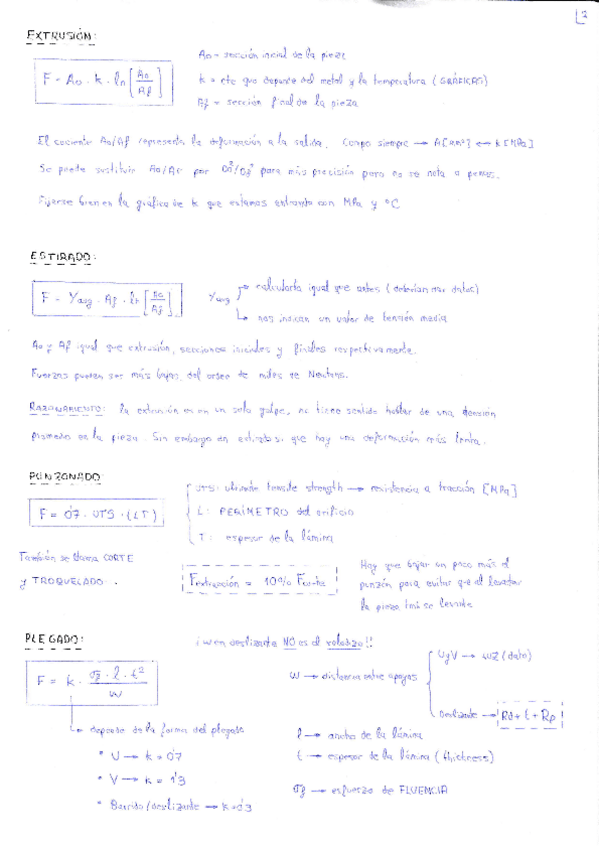 2
EXTRUSIÓN:
A₀ = sección inicial de la pieza
F = A₀ · k · ln[A₀/Af]
k = cte que depende del metal y la temperatura (GRÁFICAS)
Af = sección final de la pieza
El cociente A₀/Af representa la deformación a la salida. Como siempre → A[mm²] ↔ k[MPa]
Se puede sustituir A₀/Af por D₀²/Df² para más precisión pero no se nota a penas.
Fijarse bien en la gráfica de k que estamos entrando con MPa y °C
ESTIRADO:
F = Yavg · Af · ln[A₀/Af]
Yavg → calcularla igual que antes (deberían dar datos)
↳ nos indican un valor de tensión media
A₀ y Af igual que extrusión, secciones iniciales y finales respectivamente.
Fuerzas pueden ser más bajas, del orden de miles de Newtons.
RAZONAMIENTO: la extrusión es en un solo golpe, no tiene sentido hablar de una tensión
promedio en la pieza. Sin embargo en estirado si que hay una deformación más lenta.
PUNZONADO
UTS: ultimate tensile strength → resistencia a tracción [MPa]
F = 0'7 · UTS · (LT)
L: PERÍMETRO del orificio
T: espesor de la lámina
También se llama CORTE
y TROQUELADO.
Fextracción = 10% Fcorte
Hay que bajar un poco más el
punzón para evitar que al levantar
la pieza se levante
PLEGADO:
¡W en deslizante NO es el valor!!
F = k · σf · l · t² / W
W → distancia entre apoyos
U y V → (dato)
Deslizante → Rd + t + Rp
↳ depende de la forma del plegado
l → ancho de la lámina
• U → k = 0'7
t → espesor de la lámina (thickness)
• V → k = 1'3
σf → esfuerzo de FLUENCIA
• Barrido/deslizante → k = 0'3